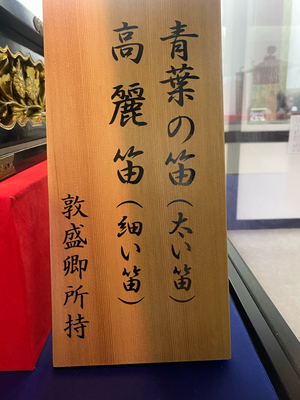 青葉の笛(太い笛)
高麗笛(細い笛)
敦盛卿所持